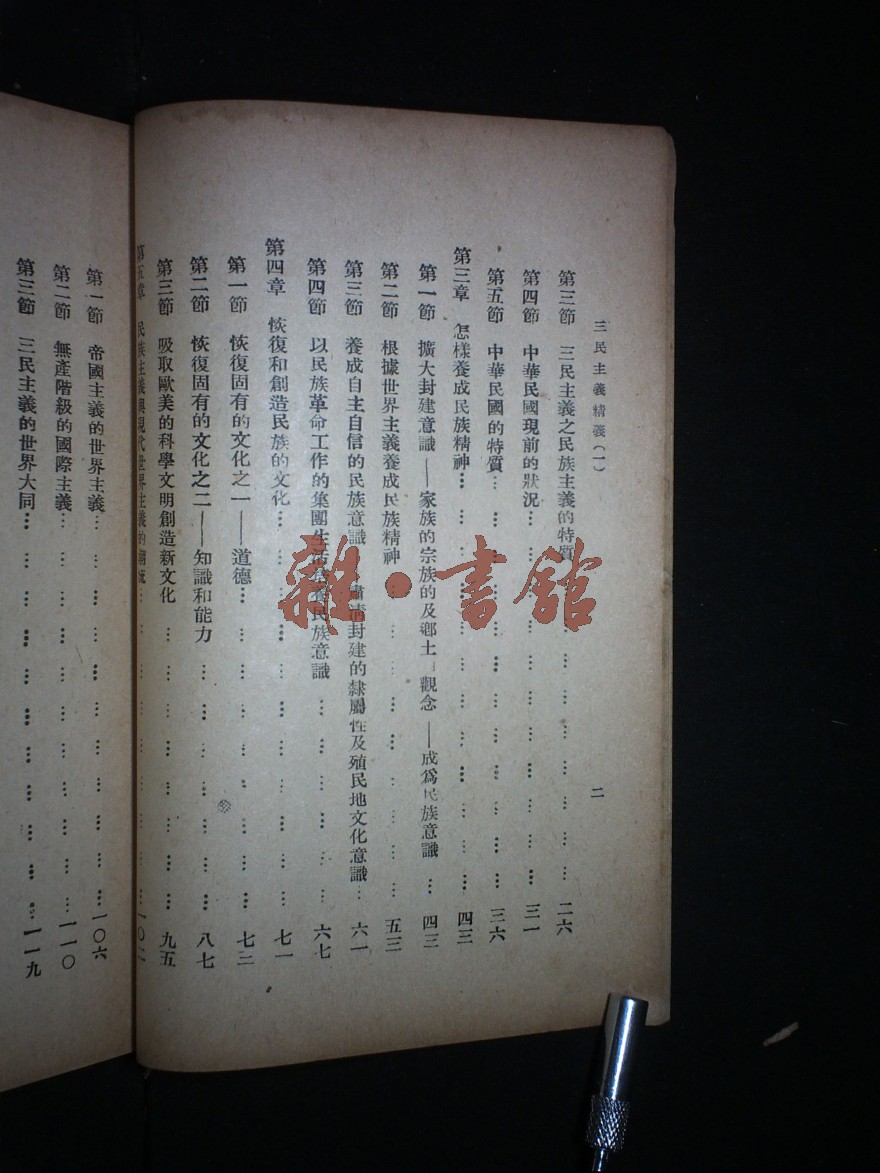 三民主義精義(一)
二
第三節 三民主義之民族主義的特質 … … … … … … … … … 二六
第四節 中華民國現前的狀况 … … … … … … … … … … 三一
第五節 中華民國的特質 … … … … … … … … … … … 三六
第三章 怎樣養成民族精神 … … … … … … … … … … … 四三
第一節 擴大封建意識——家族的宗族的及鄉土 觀念——成爲民族意識 … 四三
第二節 根據世界主義養成民族精神 … … … … … … … … 五三
第三節 養成自主自信的民族意識 肅淸封建的隸屬性及殖民地文化意識 … 六一
第四節 以民族革命工作的集團生活 養民族意識 … … … … … 六七
第四章 恢復和創造民族的文化 … … … … … … … … … … 七一
第一節 恢復固有的文化之一——道德 … … … … … … … … 七二
第二節 恢復固有的文化之二——知識和能力 … … … … … … 八七
第三節 吸取歐美的科學文明創造新文化 … … … … … … … 九五
第五章 民族主義與現代世界主義的 … … … … … … … … 一〇二
第一節 帝國主義的世界主義 … … … … … … … … … … 一〇六
第二節 無產階級的國際主義 … … … … … … … … … … 一一〇
第三節 三民主義的世界大同 … … … … … … … … … … 一一九
雜·書館